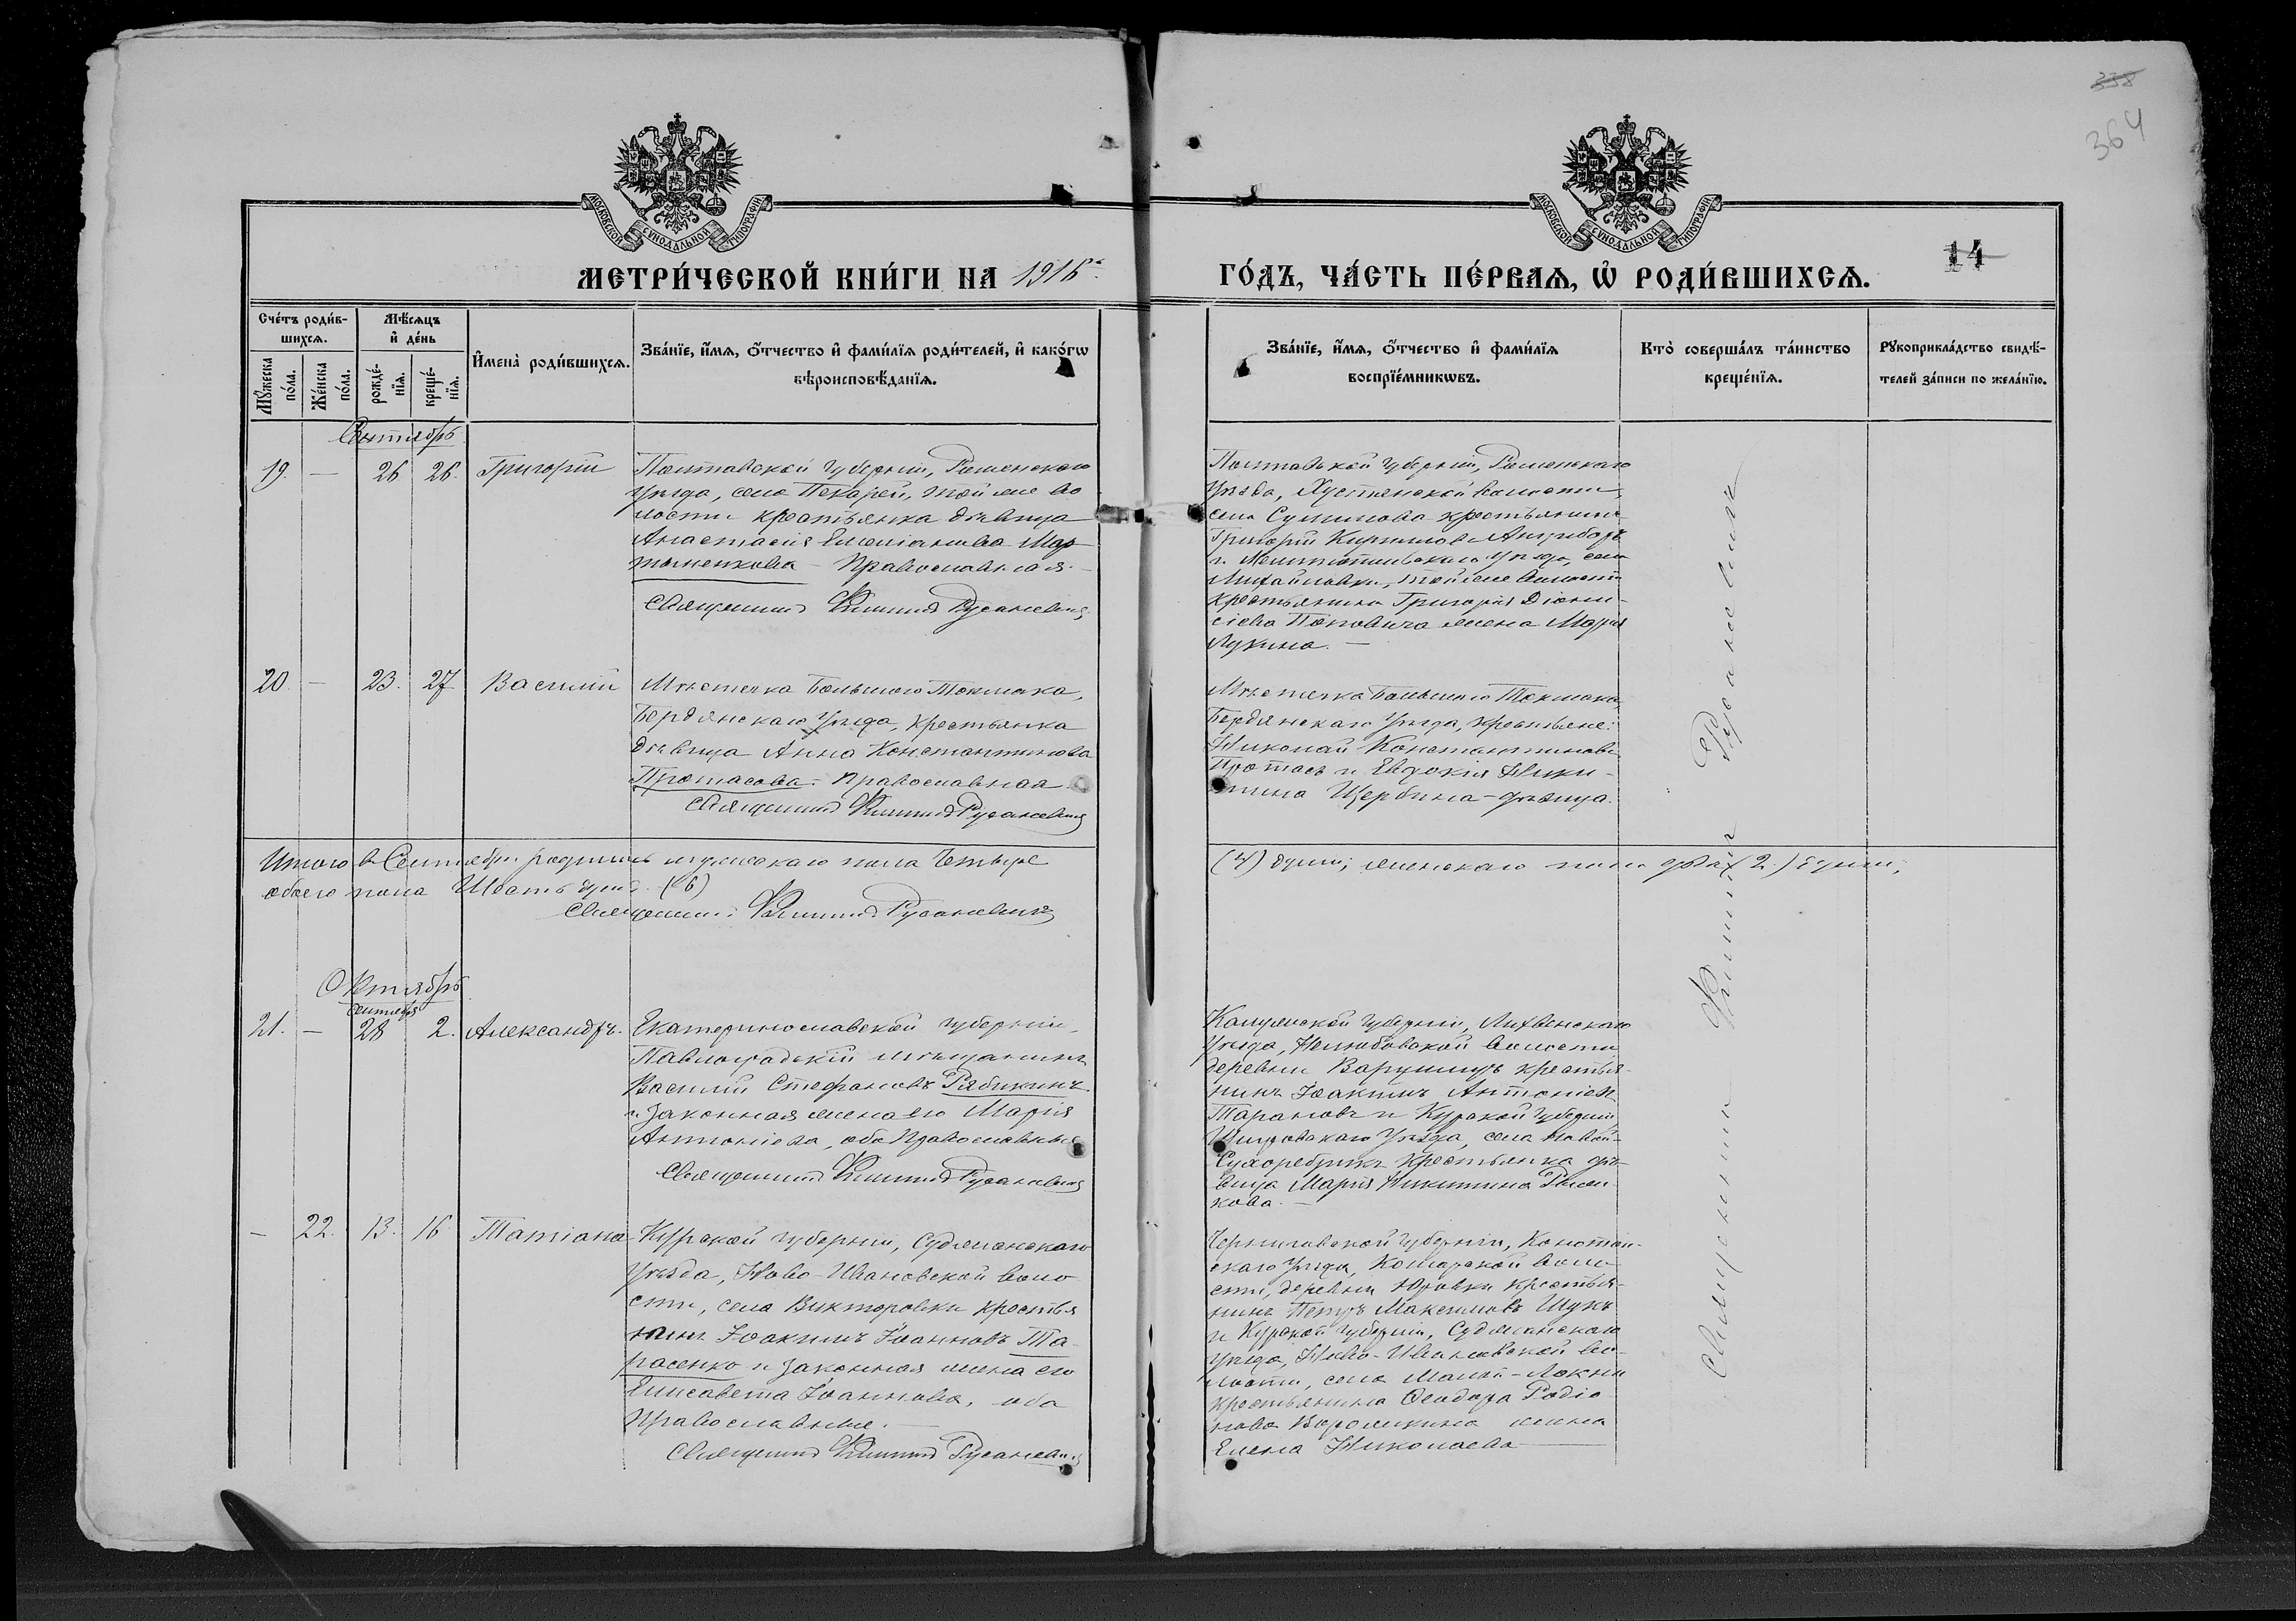 338
364
МОСКОВСКОЙ СѴНОДАЛЬНОЙ ТИПОГРАФІИ
МОСКОВСКОЙ СѴНОДАЛЬНОЙ ТИПОГРАФІИ
14
МЕТРИ́ЧЕСКОЙ КНИ́ГИ НА 1916
ГО́ДЪ, ЧА́СТЬ ПЕ́РВАѦ, Ѡ҆ РОДИ́ВШИХСѦ.
Сче́тъ роди́в-
шихсѧ.
Мꙋ́жеска по́ла.
Же́нска по́ла.
Мѣ́сѧцъ
и҆ де́нь
рожде́-
нїѧ.
креще́-
нїѧ.
И҆мена̀ роди́вшихсѧ.
Зва́нїе, и҆́мѧ, ѻ҆́тчество и҆ фами́лїѧ роди́телей, и҆ како́гѡ
вѣроисповѣ́данїѧ.
Зва́нїе, и҆́мѧ, ѻ҆́тчество и҆ фами́лїѧ
воспрїе́мникѡвъ.
Кто̀ соверша́лъ та́инство
креще́нїѧ.
Рꙋкоприкла́дство свидѣ́-
телей за́писи по жела́нїю.
Сентябрь
19. — 26 26. Григорій
Полтавской губерніи, Роменскаго
уѣзда, села Пекарей, той же во
лости крестьянка дѣвица
Анастасія Емеліанова Мар
тыненкова — Православная. —
Священникъ Филиппъ Русаневичъ
Полтавской губерніи, Роменскаго
уѣзда, Хустянской волости,
села Сулимова крестьянинъ
Григорій Кирилловъ
и Мелитопольскаго уѣзда, села
Михайловки, той же волости
крестьянина Григорія Діони-
сіева Поповича жена Марія
Лукина. —
20. — 23. 27 Василій
Мѣстечка Большого Токмака,
Бердянскаго уѣзда, крестьянка
дѣвица Анна Константинова
Протасова. — Православная
Священникъ Филиппъ Русаневичъ
Мѣстечка Большого Токмака,
Бердянскаго уѣзда, крестьяне:
Николай Константиновъ
Протасъ и Евдокія Ники-
тина Щербина — дѣвица.
Итого въ Сентябрѣ родилось мужескаго пола Четыре
(4) души; женскаго пола двѣ (2) души;
обоего пола Шесть душъ. (6)
Священникъ Филиппъ Русаневичъ
Октябрь
сентября
21. — 28 2. Александръ.
Екатеринославской губерніи,
Павлоградскій мѣщанинъ
Василій Стефановъ Рябикинъ
и законная жена его Марія
Антоніева, оба Православные
Священникъ Филиппъ Русаневичъ
Калужской губерніи, Лихвенскаго
уѣзда,
волости
деревни
крестья-
нинъ Іоакимъ Антоніевъ
Тарановъ и Курской губерніи,
Щигровскаго уѣзда, села
крестьянка дѣ-
вица Марія Никитина
кова. —
— 22. 13. 16 Татіана
Курской губерніи, Суджанскаго
уѣзда, Ново-Ивановской воло
сти, села Викторовки крестья
нинъ Іоакимъ Іоанновъ Та-
расенко и законная жена его
Елисавета Іоаннова, оба
православные. —
Священникъ Филиппъ Русаневичъ
Черниговской губерніи,
скаго уѣзда, воло-
сти, деревни Юровки крестья-
нинъ Петръ Максимовъ Щукъ
и Курской губерніи, Суджанскаго
уѣзда, Ново-Ивановской во-
лости, села Малой-Локни
крестьянина Ѳеодора Родіо
нова Ворожкина жена
Елена Николаева —
Священникъ Филиппъ Русаневичъ